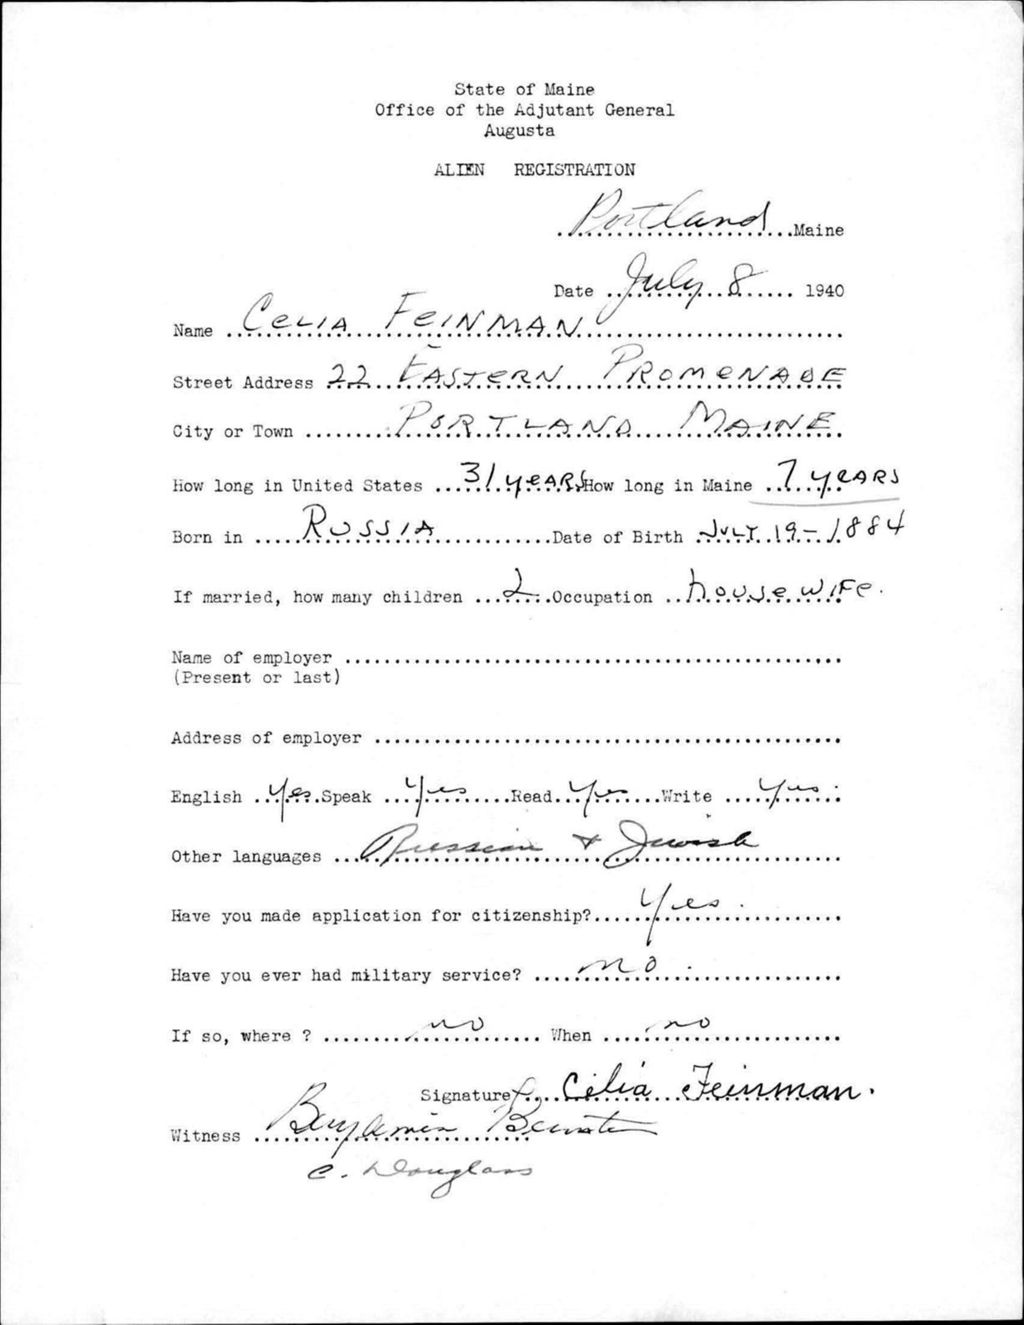 State of Maine
Office of the Adjutant General
Augusta
ALIEN REGISTRATION
Portland Maine
Date July 8 1940
Name Celia Feinman
Street Address 22 Eastern Promenade
City or Town Portland Maine
How long in United States 31 years How long in Maine 7 years
Born in Russia Date of Birth July 19-1884
If married, how many children 2 Occupation housewife.
Name of employer
(Present or last)
Address of employer
English Yes. Speak Yes Read Yes Write Yes
Other languages Russian & Jewish
Have you made application for citizenship? Yes.
Have you ever had military service? no
If so, where ? no When no
Signature Celia Feinman.
Witness Benjamin
C. Douglass